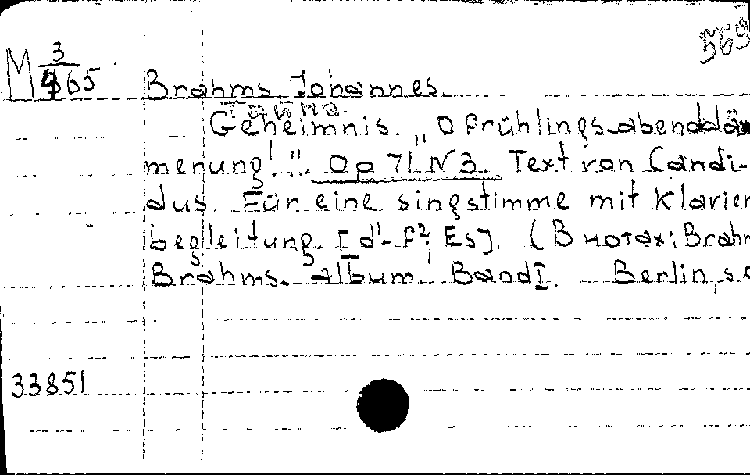 569
M 3/465
Brahms Johannes.
Тайна
Geheimnis. „O Frühlings-abenddäm
merung!". Op 71 N 3. Text von Candi-
dus. Für eine singstimme mit Klavier
begleitung. [d¹-f², Es]. (В нотах: Brahm
Brahms-album. Band I. Berlin, s.a
33851